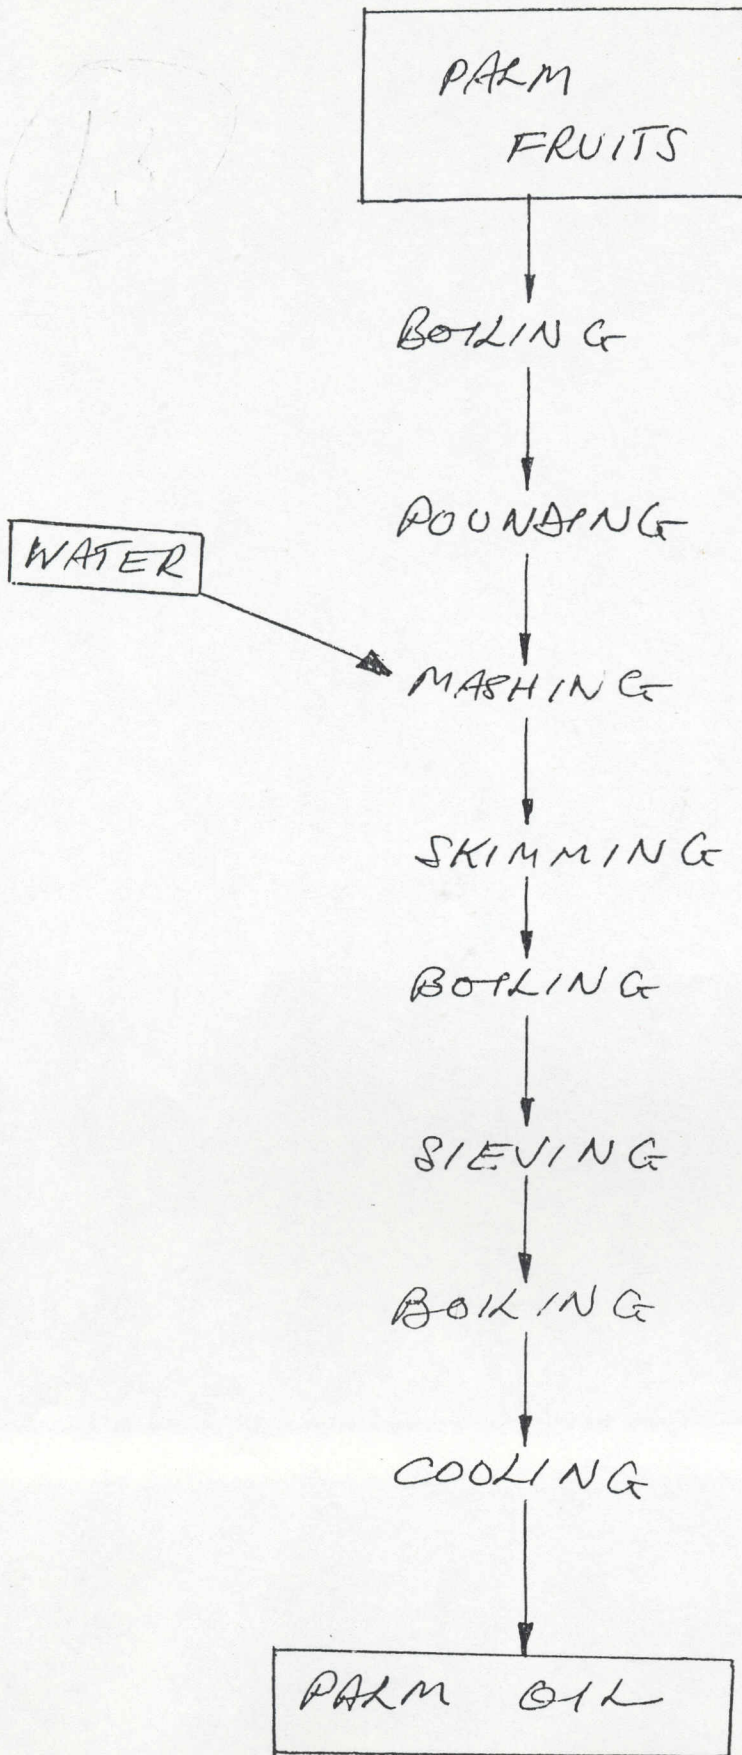 PALM
FRUITS
BOILING
POUNDING
WATER
MASHING
SKIMMING
BOILING
SIEVING
BOILING
COOLING
PALM OIL